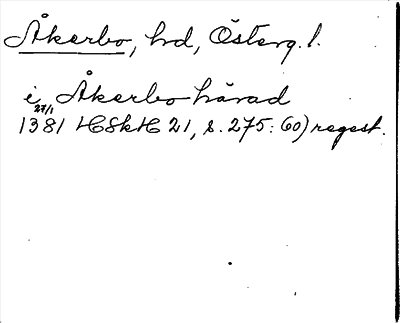 Åkerbo, hd, Österg. l.
i Åkerbo härad
27/1
1381 HSkH 21, s. 275: 60) regest.